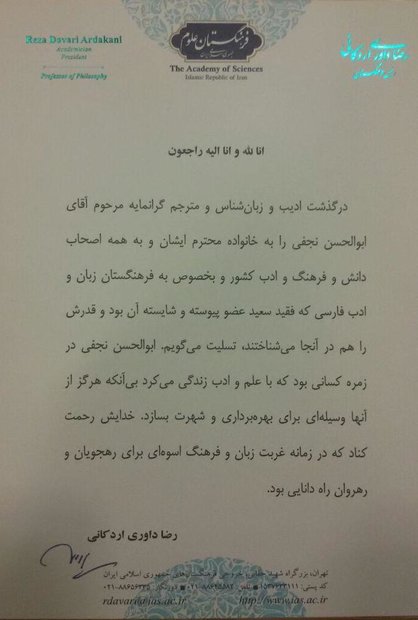 Reza Davari Ardakani
Academician
President
Professor of Philosophy
فرهنگستان علوم
جمهوری اسلامی ایران
The Academy of Sciences
Islamic Republic of Iran
رضا داوری اردکانی
انا لله و انا الیه راجعون
درگذشت ادیب و زبان‌شناس و مترجم گرانمایه مرحوم آقای
ابوالحسن نجفی را به خانواده محترم ایشان و به همه اصحاب
دانش و فرهنگ و ادب کشور و بخصوص به فرهنگستان زبان و
ادب فارسی که فقید سعید عضو پیوسته و شایسته آن بود و قدرش
را هم در آنجا می‌شناختند، تسلیت می‌گویم. ابوالحسن نجفی در
زمره کسانی بود که با علم و ادب زندگی می‌کرد بی‌آنکه هرگز از
آنها وسیله‌ای برای بهره‌برداری و شهرت بسازد. خدایش رحمت
کناد که در زمانه غربت زبان و فرهنگ اسوه‌ای برای رهجویان و
رهروان راه دانایی بود.
رضا داوری اردکانی
تهران، بزرگراه شهید حقانی، خروجی فرهنگستان‌های جمهوری اسلامی ایران
کد پستی: ۱۵۳۷۶۳۳۱۱۱ تلفن: ۰۲۱-۸۸۶۴۵۵۸۲ دورنگار: ۰۲۱-۸۸۶۵۶۲۳۵
rdavari@ias.ac.ir http://www.ias.ac.ir